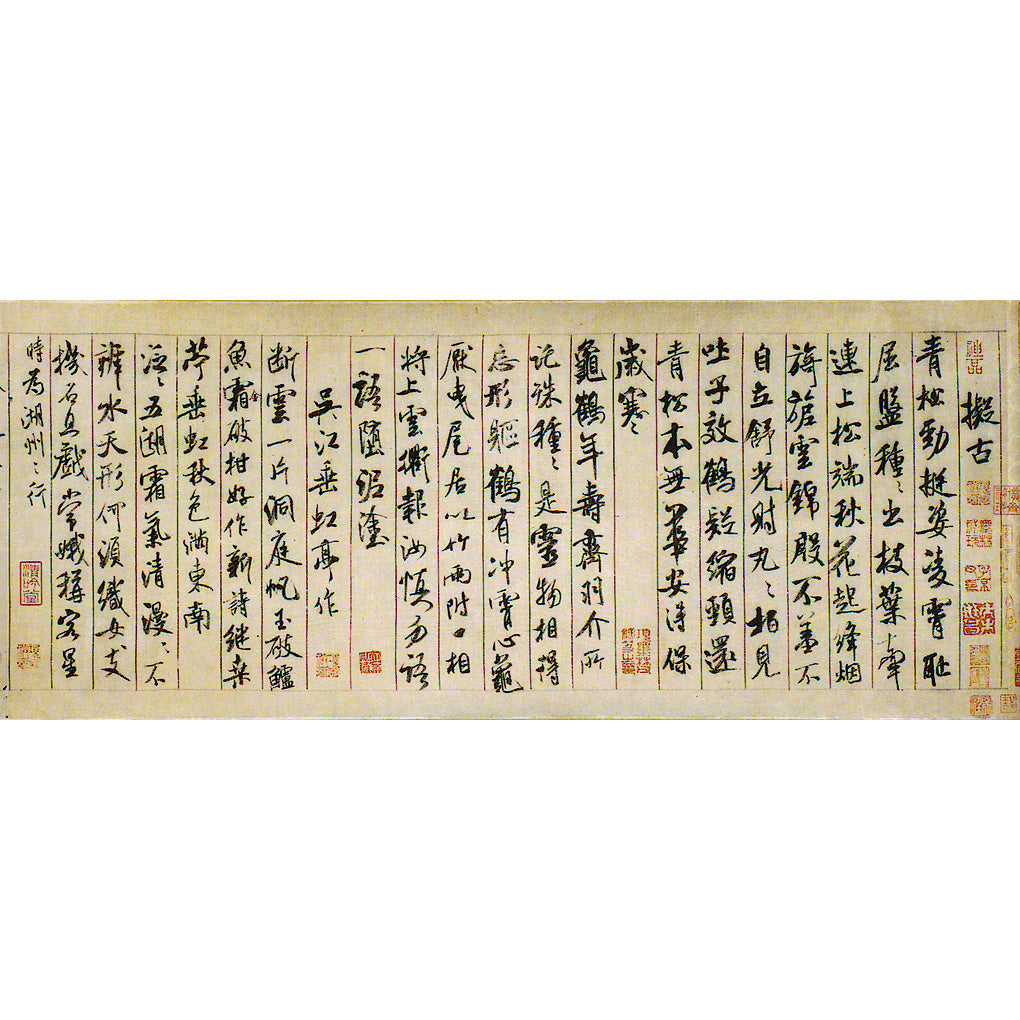 神品
擬古
青松勁挺姿凌霄耻
屈盤種〻出枝葉牽
連上松端秋花起絳烟
旖旎雲錦殷不羞不
自立舒光射丸〻柏見
吐子效鶴疑縮頸還
青松本無華安得保
歲寒〻
龜鶴年壽齊羽介所
託殊種〻是靈物相得
忘形軀鶴有冲霄心龜
厭曳尾居以竹兩附口相
將上雲衢報汝慎勿語
一語墮泥塗
吳江垂虹亭作
断雲一片洞庭帆玉破鱸
魚霜金破柑好作新詩繼桑
苧垂虹秋色滿東南
泛〻五湖霜氣清漫〻不
辨水天形何須織女支
機石且戲常娥稱客星
時為湖州之行